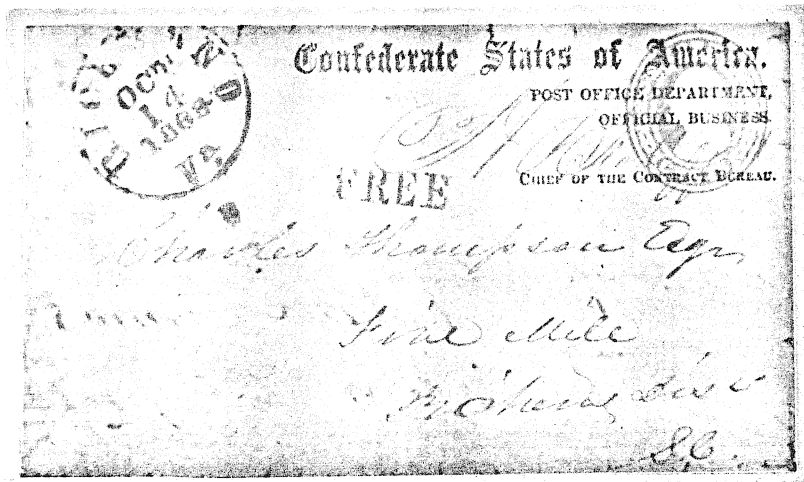 RICHMOND
OCT
14
1863
Va
Confederate States of America.
POST OFFICE DEPARTMENT,
OFFICIAL BUSINESS.
CHIEF OF THE CONTRACT BUREAU.
FREE
Charles Thompson Esqr,
Five Mile
Dist
S.C.